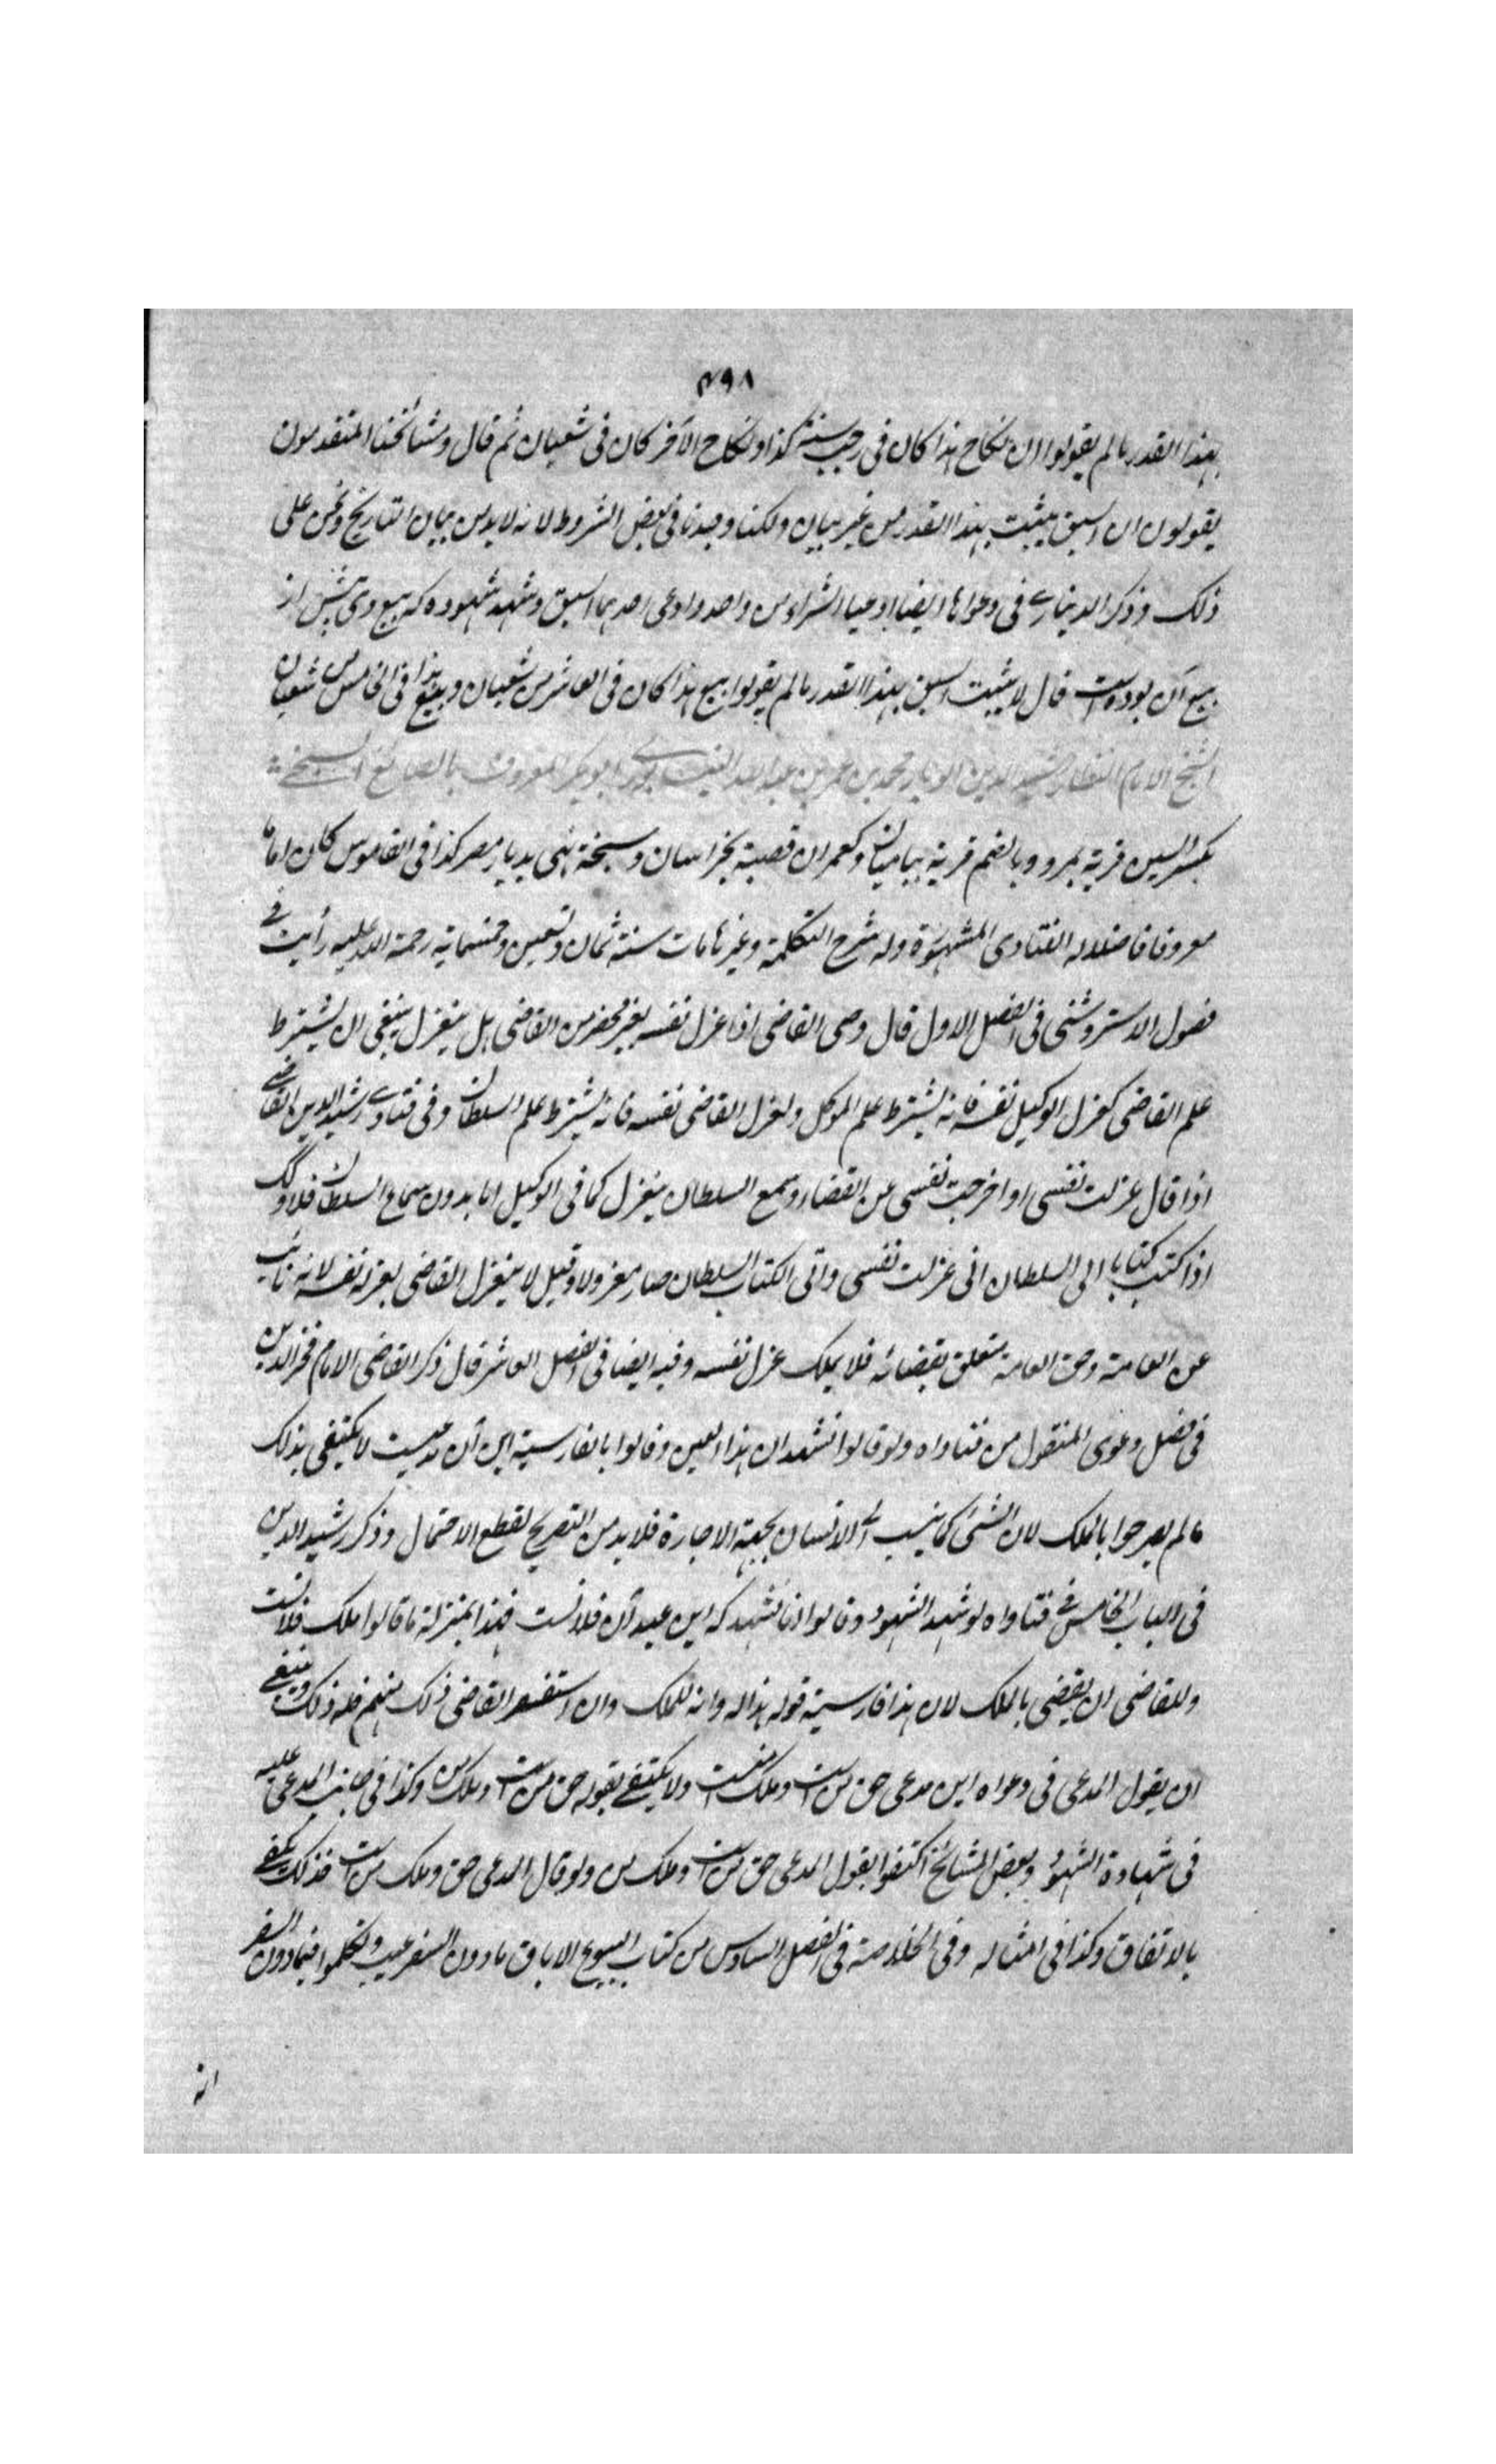 ٣٩٨
بهذا القدر ما لم يقولوا ان نكاح هذا كان فى رجب سنة كذا ونكاح الآخر كان فى شعبان ثم قال ومشائخنا المتقدمون
يقولون ان السبق يثبت بهذا القدر من غير بيان ولكنا وجدنا فى بعض الشروط لانه لابد من بيان التاريخ ونحن على
ذلك وذكر الدينارى فى دعواها ايضا ادعيا الشراء من واحد وادعى احدهما السبق وشهد شهوده كه بيع وى پيش از
بيع آن بوده است قال لا يثبت السبق بهذا القدر ما لم يقولوا بيع هذا كان فى العاشر من شعبان وبيع هذا فى الخامس من شعبان
الشيخ الامام القاضى رشيد الدين ابو بكر محمد بن عمر بن عبد الله ابو بكر المعروف بالصائغ السنجى
بكسر السين قرية بمرو وبالضم قرية بباميان وكعمران قصبة بخراسان وسنجة نهر بديار مصر كذا فى القاموس كان اماما
معروفا فاضلا له الفتاوى المشهورة وله شرح التكملة وغيرها مات سنة ثمان وتسعين وخمسمائة رحمة الله عليه رأيت فى
فصول الاستروشنى فى الفصل الاول قال وصى القاضى اذا عزل نفسه بغير محضر من القاضى هل ينعزل ينبغى ان يشترط
علم القاضى كعزل الوكيل نفسه فانه يشترط علم الموكل وبعزل القاضى نفسه فانه يشترط علم السلطان وفى فتاوى رشيد الدين القاضى
اذا قال عزلت نفسى او اخرجت نفسى عن القضاء وسمع السلطان ينعزل كما فى الوكيل اما بدون سماع السلطان فلا وكذلك
اذا كتب كتابا الى السلطان انى عزلت نفسى واتى الكتاب السلطان صار معزولا وقيل لا ينعزل القاضى بعزله نفسه لانه نائب
عن العامة وحق العامة متعلق بقضائه فلا يملك عزل نفسه وفيه ايضا فى الفصل العاشر قال ذكر القاضى الامام فخر الدين
فى فصل دعوى المنقول من فتاواه ولو قالوا نشهد ان هذا العين وقالوا بالفارسية اين آن مدعيست لا يكتفى بذلك
ما لم يصرحوا بالملك لان الشئ كما ينسب الى الانسان بجهة الاجارة فلابد من التصريح لقطع الاحتمال وذكر رشيد الدين
فى الباب الخامس فى فتاواه لو شهد الشهود وقالوا انا نشهد كه اين عبد آن فلانست فهذا بمنزلة ما قالوا ملك فلانست
وللقاضى ان يقضى بالملك لان هذا فارسية قوله هذا له وانه للملك وان استفسر القاضى ذلك منهم فله ذلك وينبغى
ان يقول المدعى فى دعواه اين مدعى حق من است وملك منست ولا يكتفى بقوله حق من است وملك من وكذا فى جانب المدعى عليه
فى شهادة الشهود وبعض المشائخ اكتفوا بقول المدعى حق من است وملك من ولو قال المدعى حق وملك من است فذلك يكفى
بالاتفاق وكذا فى امثاله وفى الخلاصة فى الفصل السادس من كتاب البيوع الاباق مادون السفر عيب وتكلموا فيما دون السفر
انه